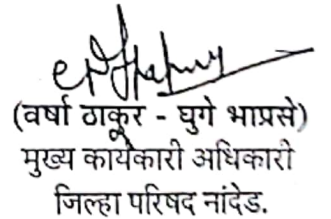 (वर्षा ठाकूर - घुगे भाप्रसे)
मुख्य कार्यकारी अधिकारी
जिल्हा परिषद नांदेड.